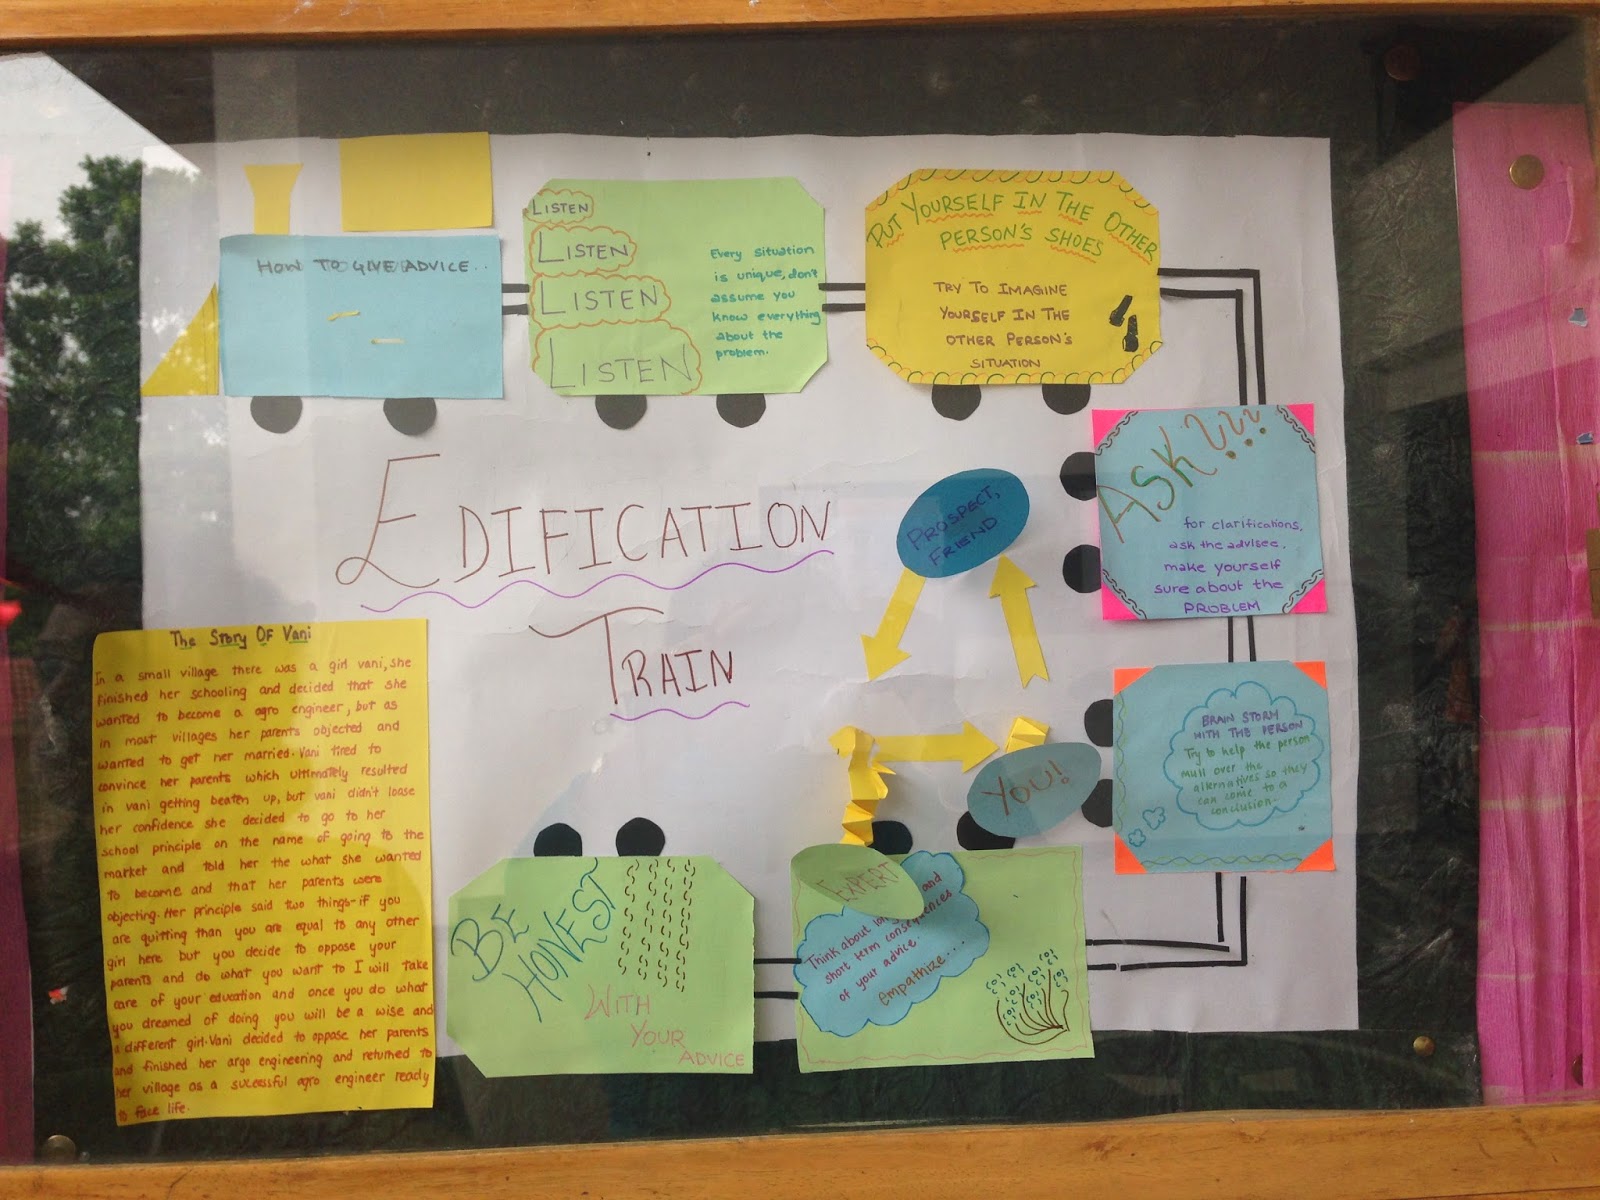 HOW TO GIVE ADVICE..
LISTEN
LISTEN
LISTEN
LISTEN
Every situation
is unique, don't
assume you
know everything
about the
problem.
PUT YOURSELF IN THE OTHER
PERSON'S SHOES
TRY TO IMAGINE
YOURSELF IN THE
OTHER PERSON'S
SITUATION
ASK???
for clarifications,
ask the advisee,
make yourself
sure about the
PROBLEM
BRAIN STORM
WITH THE PERSON
Try to help the person
mull over the
alternatives so they
can come to a
conclution-
EDIFICATION
TRAIN
PROSPECT,
FRIEND
YOU!
EXPERT
Think about and
short term consequences
of your advice.
empathize....
BE
HONEST
WITH
YOUR
ADVICE
The Story OF Vani
In a small village there was a girl vani, she
finished her schooling and decided that she
wanted to become a agro engineer, but as
in most villages her parents objected and
wanted to get her married. Vani tired to
convince her parents which ultimately resulted
in vani getting beaten up, but vani didn't loase
her confidence she decided to go to her
school principle on the name of going to the
market and told her the what she wanted
to become and that her parents were
objecting. Her principle said two things- if you
are quitting than you are equal to any other
girl here but you decide to oppose your
parents and do what you want to I will take
care of your education and once you do what
you dreamed of doing you will be a wise and
a different girl. Vani decided to oppose her parents
and finished her argo engineering and returned to
her village as a sucessful agro engineer ready
to face life.